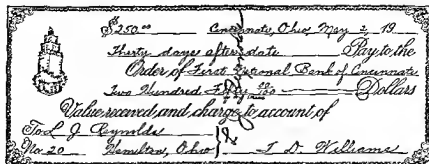 $250.00 Cincinnati, Ohio, May 2 19
Thirty days after date Pay to the
Order of First National Bank of Cincinnati
Two Hundred Fifty Dollars
Value received, and charge to account of
To L. J. Reynolds
No. 20 Hamilton, Ohio J. D. Williams